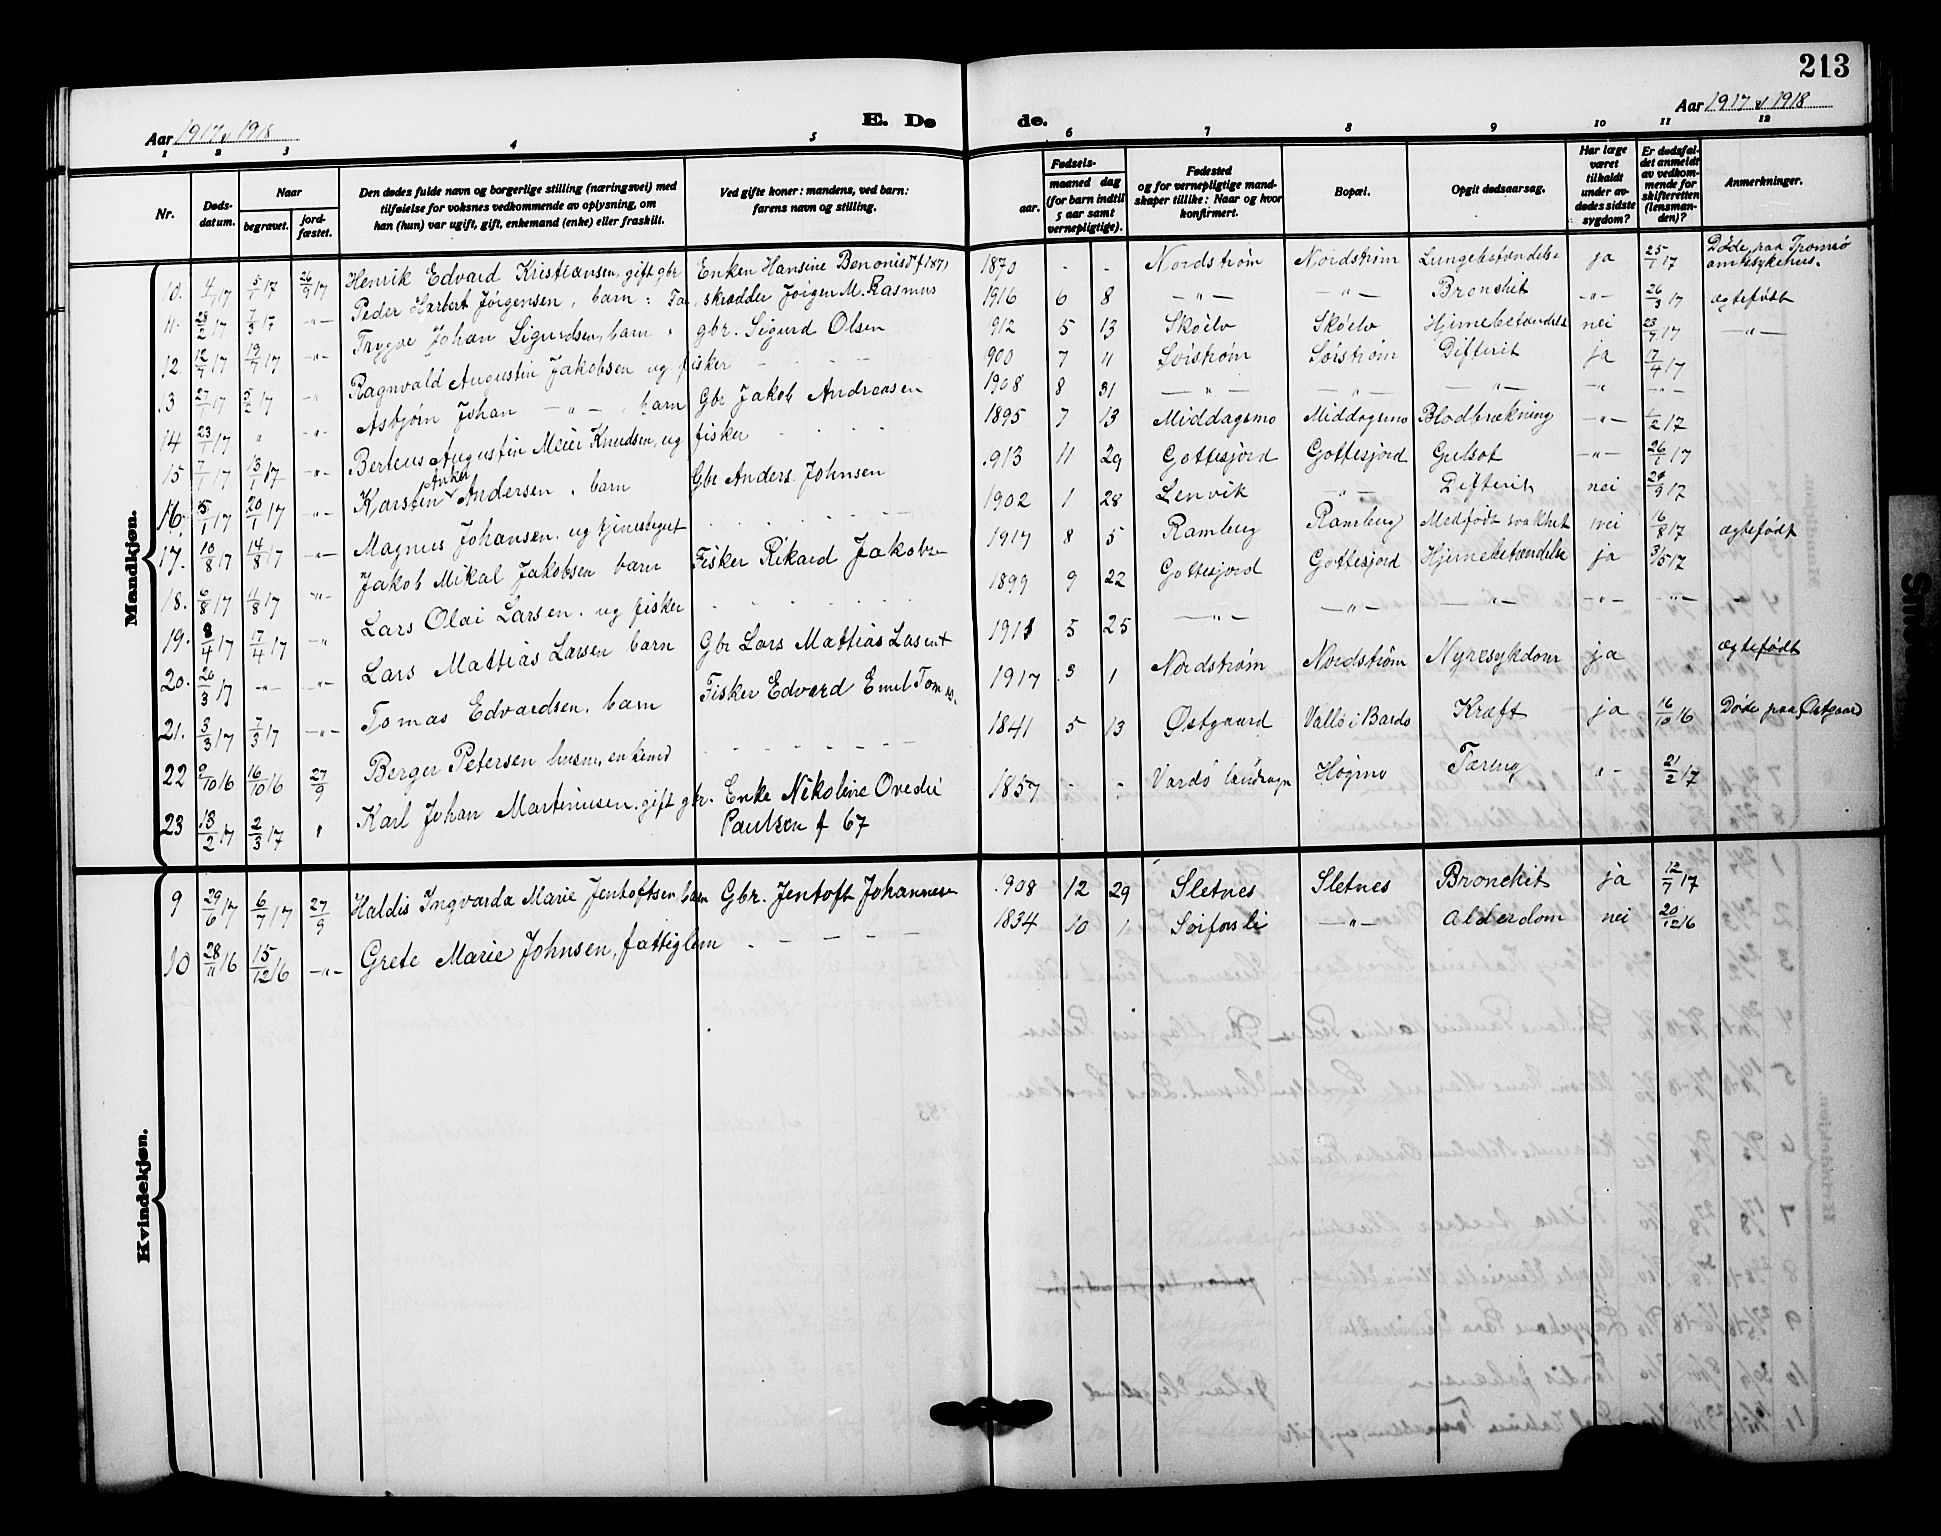 213
Aar 1917 & 1918
E. Dø de.
Aar 1917 & 1918
1 2 3 4 5 6 7 8 9 10 11 12
Nr.
Døds-datum.
Naar
begravet.
jord-fæstet.
Den dødes fulde navn og borgerlige stilling (næringsvei) med
tilføielse for voksnes vedkommende av oplysning, om
han (hun) var ugift, gift, enkemand (enke) eller fraskilt.
Ved gifte koner: mandens, ved barn:
farens navn og stilling.
Fødsels-
aar.
maaned dag
(for barn indtil
5 aar samt
vernepligtige).
Fødested
og for vernepligtige mand-
skaper tillike: Naar og hvor
konfirmert.
Bopæl.
Opgit dødsaarsag.
Har læge
været
tilkaldt
under av-
dødes sidste
sygdom?
Er dødsfal-
det anmeldt
av vedkom-
mende for
skifteretten
(lensman-
den)?
Anmerkninger.
Mandkjøn.
10. 4/17 5/7 17 26/9 17 Henrik Edvard Kristiansen, gift gbr Enken Hansine Benonisd f 1871 1870 - - Nordstrøm Nordstrøm Lungebetændelse ja 25/7 17 Døde paa Tromsø amtssykehus.
11. 28/2 17 7/3 17 -"- Peder Harbert Jørgensen, barn: Far, skrædder Jørgen M. Rasmus 1916 6 8 -"- -"- Bronchit -"- 26/3 17 ægtefødt
12 12/7 17 19/7 17 -"- Trygve Johan Sigurdsen, barn, gbr. Sigurd Olsen 912 5 13 Skøelv Skøelv Hjernebetændelse nei 23/7 17 -"-
13 27/1 17 5/2 17 -"- Ragnvald Augustin Jakobsen ug fisker - - - 900 7 11 Sørstrøm Sørstrøm Difterit ja 17/4 17
14 23/1 17 " -"- Asbjørn Johan -"-, barn Gbr Jakob Andreasen 1908 8 31 -"- -"- -"- -"- -"-
15 7/1 17 13/1 17 -"- Berteus Augustin Meier Knudsen, ug fisker - - - 1895 7 13 Middagsmo Middagsmo Blodbrækning -"- 1/2 17
16. 15/1 17 20/1 17 -"- Karsten Anker Andersen, barn Gbr Anders Johnsen 913 11 29 Gottesjord Gottesjord Gulsot -"- 26/1 17
17. 10/8 17 14/8 17 -"- Magnus Johansen, ug tjenestegut - - - 1902 1 28 Lenvik -"- Difterit nei 24/9 17
18. 6/8 17 11/8 17 -"- Jakob Mikal Jakobsen barn Fisker Rikard Jakobsen 1917 8 5 Ramberg Ramberg Medfødt svakhet nei 16/8 17 ægtefødt
19. 8/4 17 17/4 17 -"- Lars Olai Larsen, ug fisker - - - 1899 9 22 Gottesjord Gottesjord Hjernebetændelse ja 3/5 17
20. 20/3 17 -"- -"- Lars Mattias Larsen barn Gbr Lars Mattias Larsen 1911 5 25 -"- -"- -"- -"- -"- -"-
21. 3/3 17 7/3 17 -"- Tomas Edvardsen, barn Fisker Edvard Emil Tomas. 1917 3 1 Nordstrøm Nordstrøm Nyresykdom ja ægtefødt
22 9/10 16 16/10 16 27/9 Berger Petersen husm, enkemd - - - 1841 5 13 Østgaard Vallø i Bardo Kræft ja 16/10 16 Døde paa Østgaard
23 13/2 17 2/3 17 " Karl Johan Martinusen, gift gbr. Enke Nikoline Ovedie Paulsen f 67 1857 - - Vardø landsogn Høgmo Tæring "- 21/2 17
Kvindekjøn.
9 29/6 17 6/7 17 27/9 Haldis Ingvarda Marie Jentoftsen, barn Gbr. Jentoft Johannesen 908 12 29 Sletnes Sletnes Bronchit ja 12/7 17
10 28/11 16 15/12 16 -"- Grete Marie Johnsen, fattiglem - - - 1834 10 1 Sørforsli -"- Alderdom nei 20/12 16